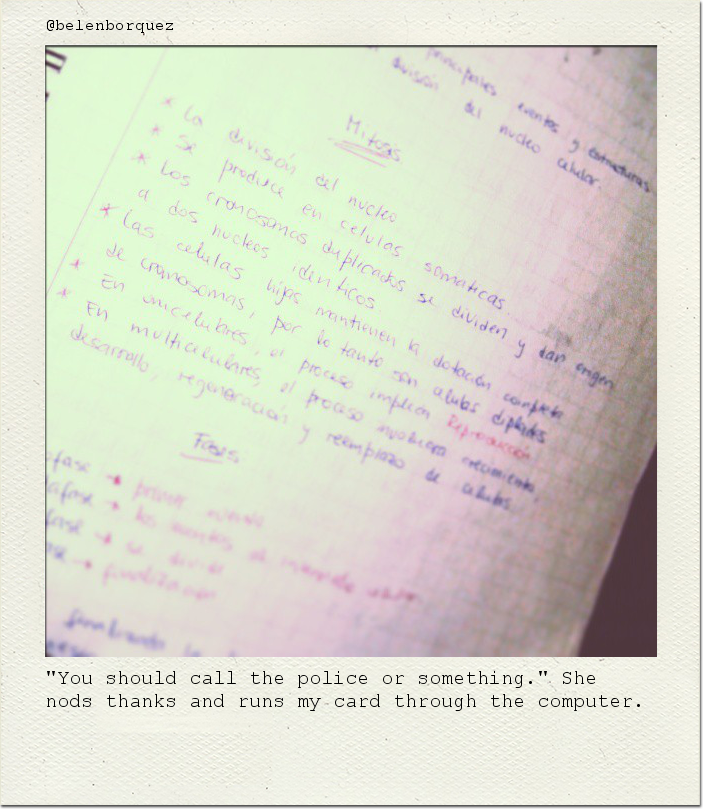 @belenborquez
principales eventos y estructuras
división del nucleo celular.
Mitosis
* La división del nucleo
* Se produce en celulas somaticas
* Los cromosomas duplicados se dividen y dan origen
a dos nucleos identicos
* Las celulas hijas mantienen la dotación completa
de cromosomas, por lo tanto son celulas diploides
* En unicelulares, el proceso implica Reproducción
* En multicelulares, el proceso involucra crecimiento,
desarrollo, regeneración y reemplazo de celulas.
Fases
ofase → primer evento
afase → los
fase → se divide
ase → finalización
finalizando la
"You should call the police or something." She
nods thanks and runs my card through the computer.